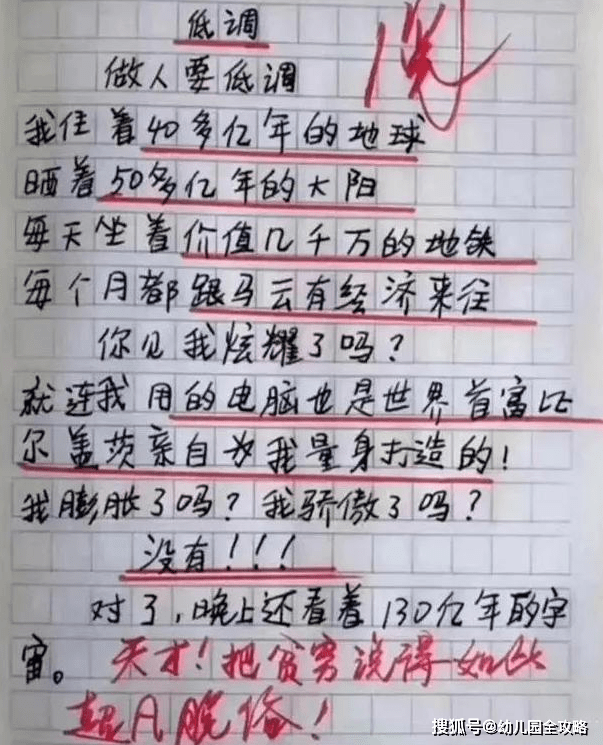 低调
做人要低调
我住着40多亿年的地球
晒着50多亿年的大阳
每天坐着价值几千万的地铁
每个月都跟马云有经济来往
你见我炫耀了吗?
就连我用的电脑也是世界首富比
尔盖茨亲自为我量身打造的!
我膨胀了吗?我骄傲了吗?
没有!!!
对了,晚上还看着130亿年的宇
宙。天才!把贫穷说得如此
超凡脱俗!
搜狐号@幼儿园全攻略